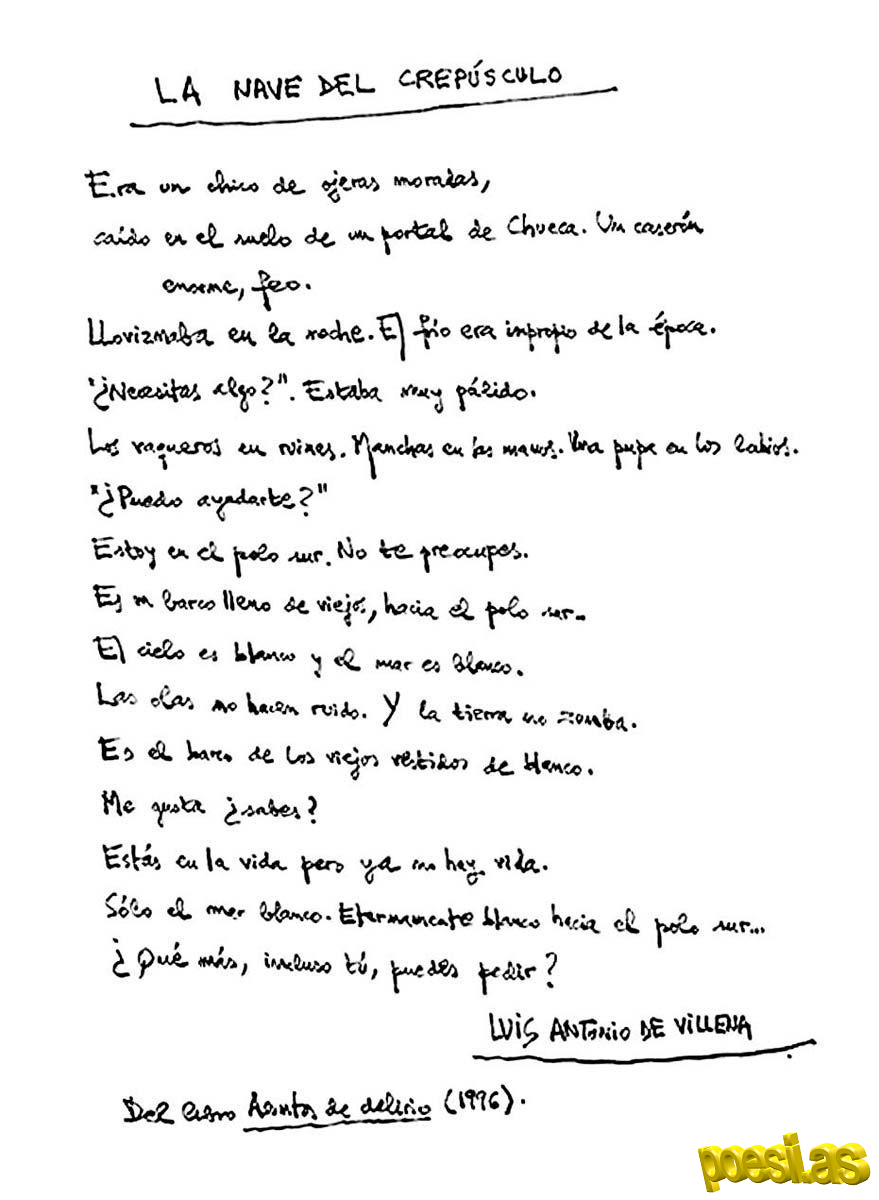 LA NAVE DEL CREPÚSCULO
Era un chico de ojeras moradas,
caído en el suelo de un portal de Chueca. Un caserón
enorme, feo.
Lloviznaba en la noche. El frío era impropio de la época.
"¿Necesitas algo?". Estaba muy pálido.
Los vaqueros en ruinas. Manchas en las manos. Una pupa en los labios.
"¿Puedo ayudarte?"
Estoy en el polo sur. No te preocupes.
Es un barco lleno de viejos, hacia el polo sur...
El cielo es blanco y el mar es blanco.
Las olas no hacen ruido. Y la tierra no zumba.
Es el barco de los viejos vestidos de blanco.
Me gusta ¿sabes?
Estás en la vida pero ya no hay vida.
Sólo el mar blanco. Eternamente blanco hacia el polo sur...
¿Qué más, incluso tú, puedes pedir?
LUIS ANTONIO DE VILLENA
Del libro Asuntos de delirio (1996).
poesi.as